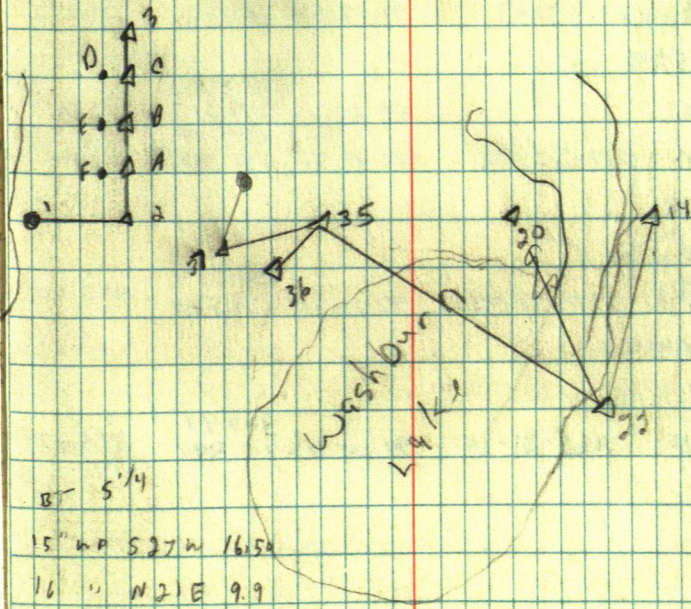 3
D C
E B
F A
1 2
35 14
20
37 36
Washburn
Lake
22
BT S 1/4
15" WP S27W 16.50
16 " N21E 9.9